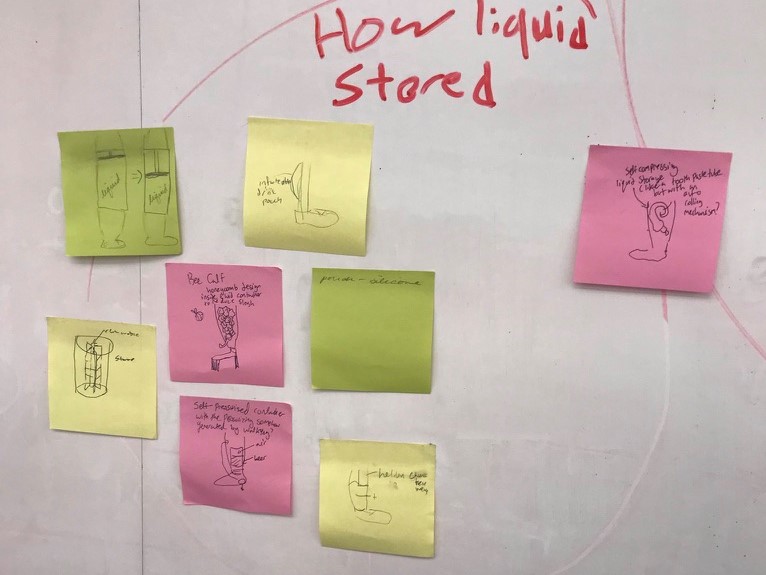 How liquid
stored
liquid
liquid
drink
pouch
Self compressing
liquid storage
like a tooth paste tube
but with an
auto
rolling
mechanism?
Bee Calf
honeycomb design
inside fluid container
to reduce slosh
pouch - silicone
Self-pressurized container
with the pressurizing
generated by walking?
air
beer